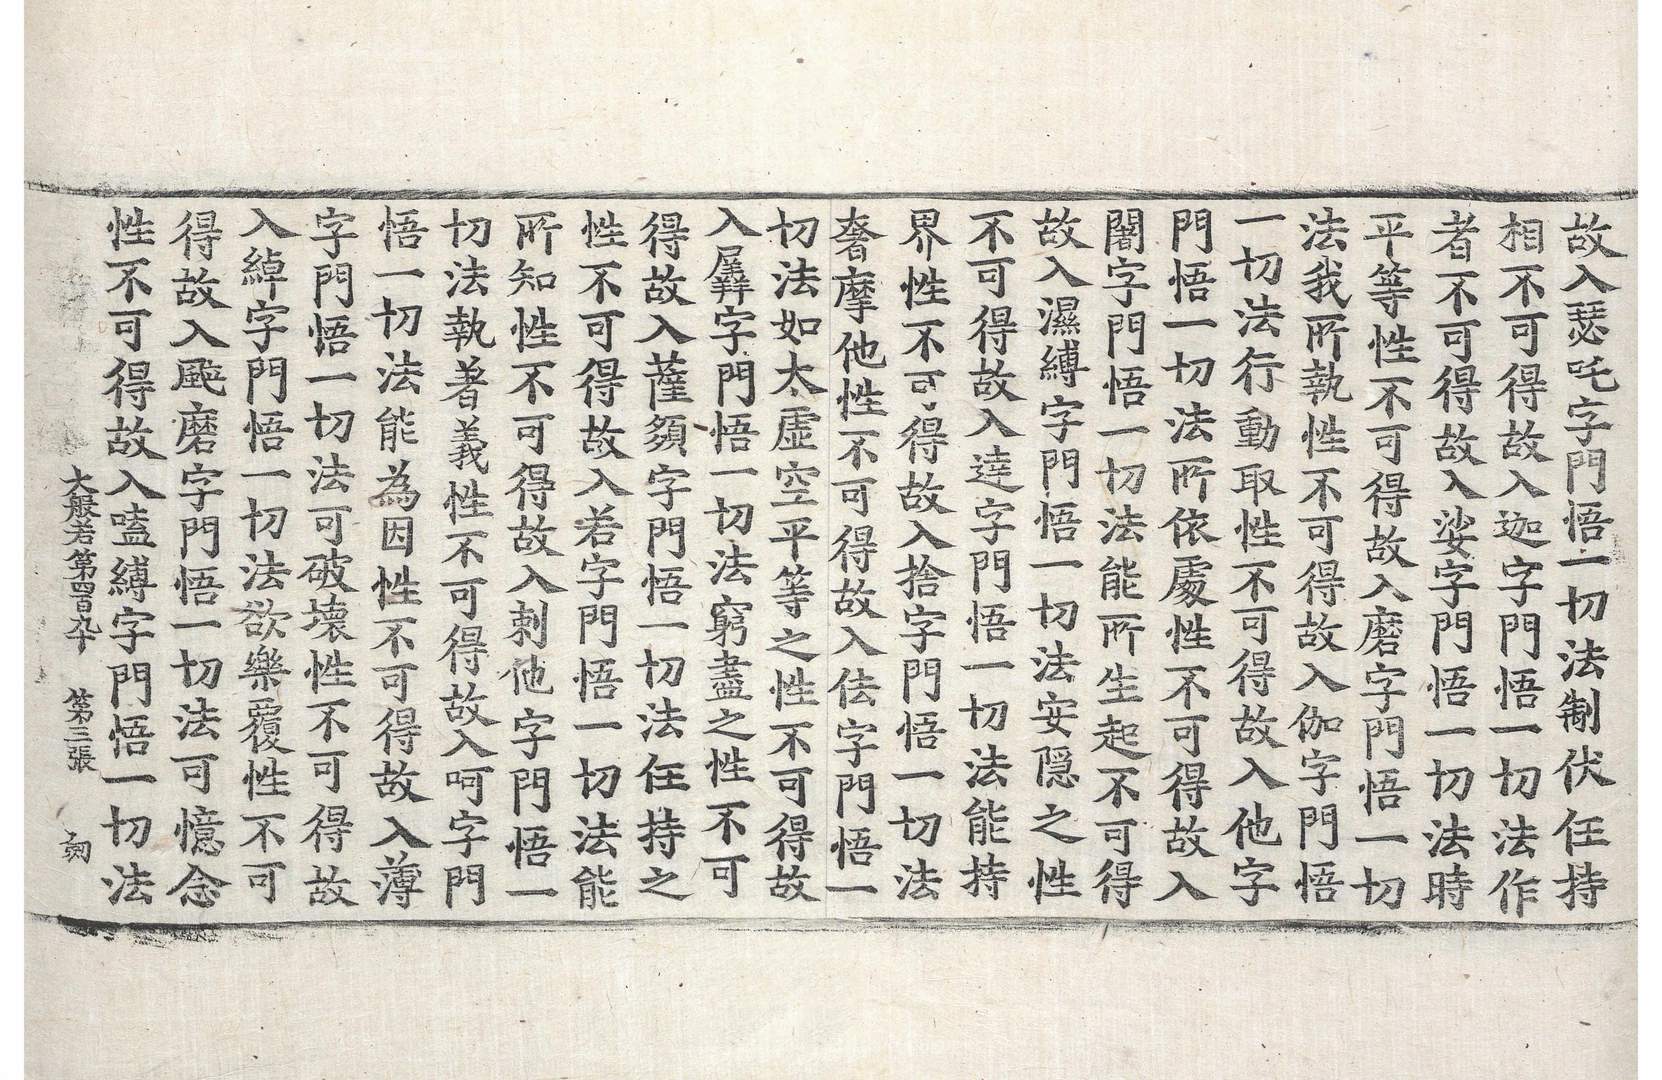 故入瑟吒字門悟一切法制伏任持
相不可得故入迦字門悟一切法作
者不可得故入娑字門悟一切法時
平等性不可得故入磨字門悟一切
法我所執性不可得故入伽字門悟
一切法行動取性不可得故入他字
門悟一切法所依處性不可得故入
闍字門悟一切法能所生起不可得
故入濕縛字門悟一切法安隱之性
不可得故入達字門悟一切法能持
界性不可得故入捨字門悟一切法
奢摩他性不可得故入佉字門悟一
切法如太虛空平等之性不可得故
入羼字門悟一切法窮盡之性不可
得故入薩頞字門悟一切法任持之
性不可得故入若字門悟一切法能
所知性不可得故入剌他字門悟一
切法執著義性不可得故入呵字門
悟一切法能為因性不可得故入薄
字門悟一切法可破壞性不可得故
入綽字門悟一切法欲樂覆性不可
得故入颯磨字門悟一切法可憶念
性不可得故入嗑縛字門悟一切法
大般若第四百九十 第三張